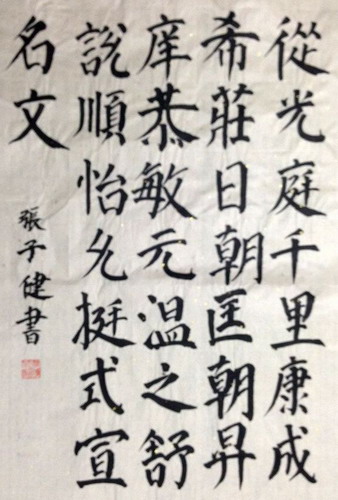 從光庭千里康成
希莊日朝匡朝昇
庠恭敏元溫之舒
說順怡允挺式宣
名文
張子健書